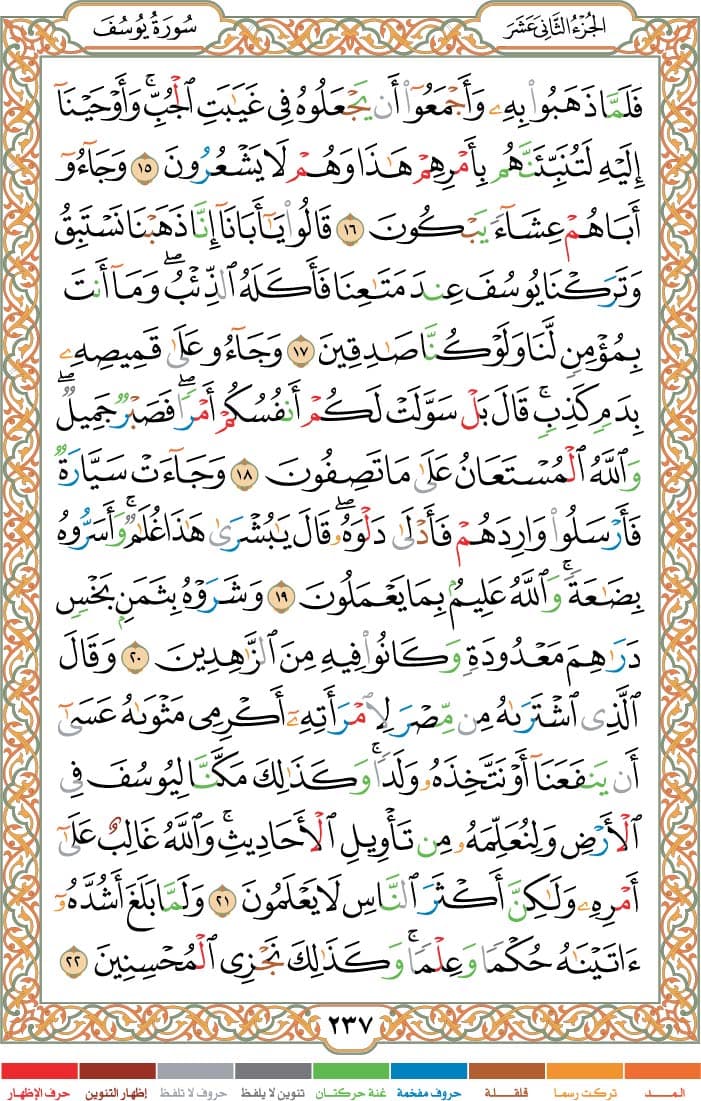 الجزء الثاني عشر
سورة يوسف
فَلَمَّا ذَهَبُوا۟ بِهِۦ وَأَجْمَعُوٓا۟ أَن يَجْعَلُوهُ فِى غَيَـٰبَتِ ٱلْجُبِّ ۚ وَأَوْحَيْنَآ
إِلَيْهِ لَتُنَبِّئَنَّهُم بِأَمْرِهِمْ هَـٰذَا وَهُمْ لَا يَشْعُرُونَ ١٥ وَجَآءُوٓ
أَبَاهُمْ عِشَآءً يَبْكُونَ ١٦ قَالُوا۟ يَـٰٓأَبَانَآ إِنَّا ذَهَبْنَا نَسْتَبِقُ
وَتَرَكْنَا يُوسُفَ عِندَ مَتَـٰعِنَا فَأَكَلَهُ ٱلذِّئْبُ ۖ وَمَآ أَنتَ
بِمُؤْمِنٍ لَّنَا وَلَوْ كُنَّا صَـٰدِقِينَ ١٧ وَجَآءُو عَلَىٰ قَمِيصِهِۦ
بِدَمٍ كَذِبٍ ۚ قَالَ بَلْ سَوَّلَتْ لَكُمْ أَنفُسُكُمْ أَمْرًا ۖ فَصَبْرٌ جَمِيلٌ ۖ
وَٱللَّهُ ٱلْمُسْتَعَانُ عَلَىٰ مَا تَصِفُونَ ١٨ وَجَآءَتْ سَيَّارَةٌ
فَأَرْسَلُوا۟ وَارِدَهُمْ فَأَدْلَىٰ دَلْوَهُۥ ۖ قَالَ يَـٰبُشْرَىٰ هَـٰذَا غُلَـٰمٌ ۚ وَأَسَرُّوهُ
بِضَـٰعَةً ۚ وَٱللَّهُ عَلِيمٌۢ بِمَا يَعْمَلُونَ ١٩ وَشَرَوْهُ بِثَمَنٍۭ بَخْسٍ
دَرَٰهِمَ مَعْدُودَةٍ وَكَانُوا۟ فِيهِ مِنَ ٱلزَّٰهِدِينَ ٢٠ وَقَالَ
ٱلَّذِى ٱشْتَرَىٰهُ مِن مِّصْرَ لِٱمْرَأَتِهِۦٓ أَكْرِمِى مَثْوَىٰهُ عَسَىٰٓ
أَن يَنفَعَنَآ أَوْ نَتَّخِذَهُۥ وَلَدًا ۚ وَكَذَٰلِكَ مَكَّنَّا لِيُوسُفَ فِى
ٱلْأَرْضِ وَلِنُعَلِّمَهُۥ مِن تَأْوِيلِ ٱلْأَحَادِيثِ ۚ وَٱللَّهُ غَالِبٌ عَلَىٰٓ
أَمْرِهِۦ وَلَـٰكِنَّ أَكْثَرَ ٱلنَّاسِ لَا يَعْلَمُونَ ٢١ وَلَمَّا بَلَغَ أَشُدَّهُۥٓ
ءَاتَيْنَـٰهُ حُكْمًا وَعِلْمًا ۚ وَكَذَٰلِكَ نَجْزِى ٱلْمُحْسِنِينَ ٢٢
٢٣٧
المــد تركت رسما قلقلة حروف مفخمة غنة حركتان تنوين لا يلفظ حروف لا تلفظ إظهار التنوين حرف الإظهار